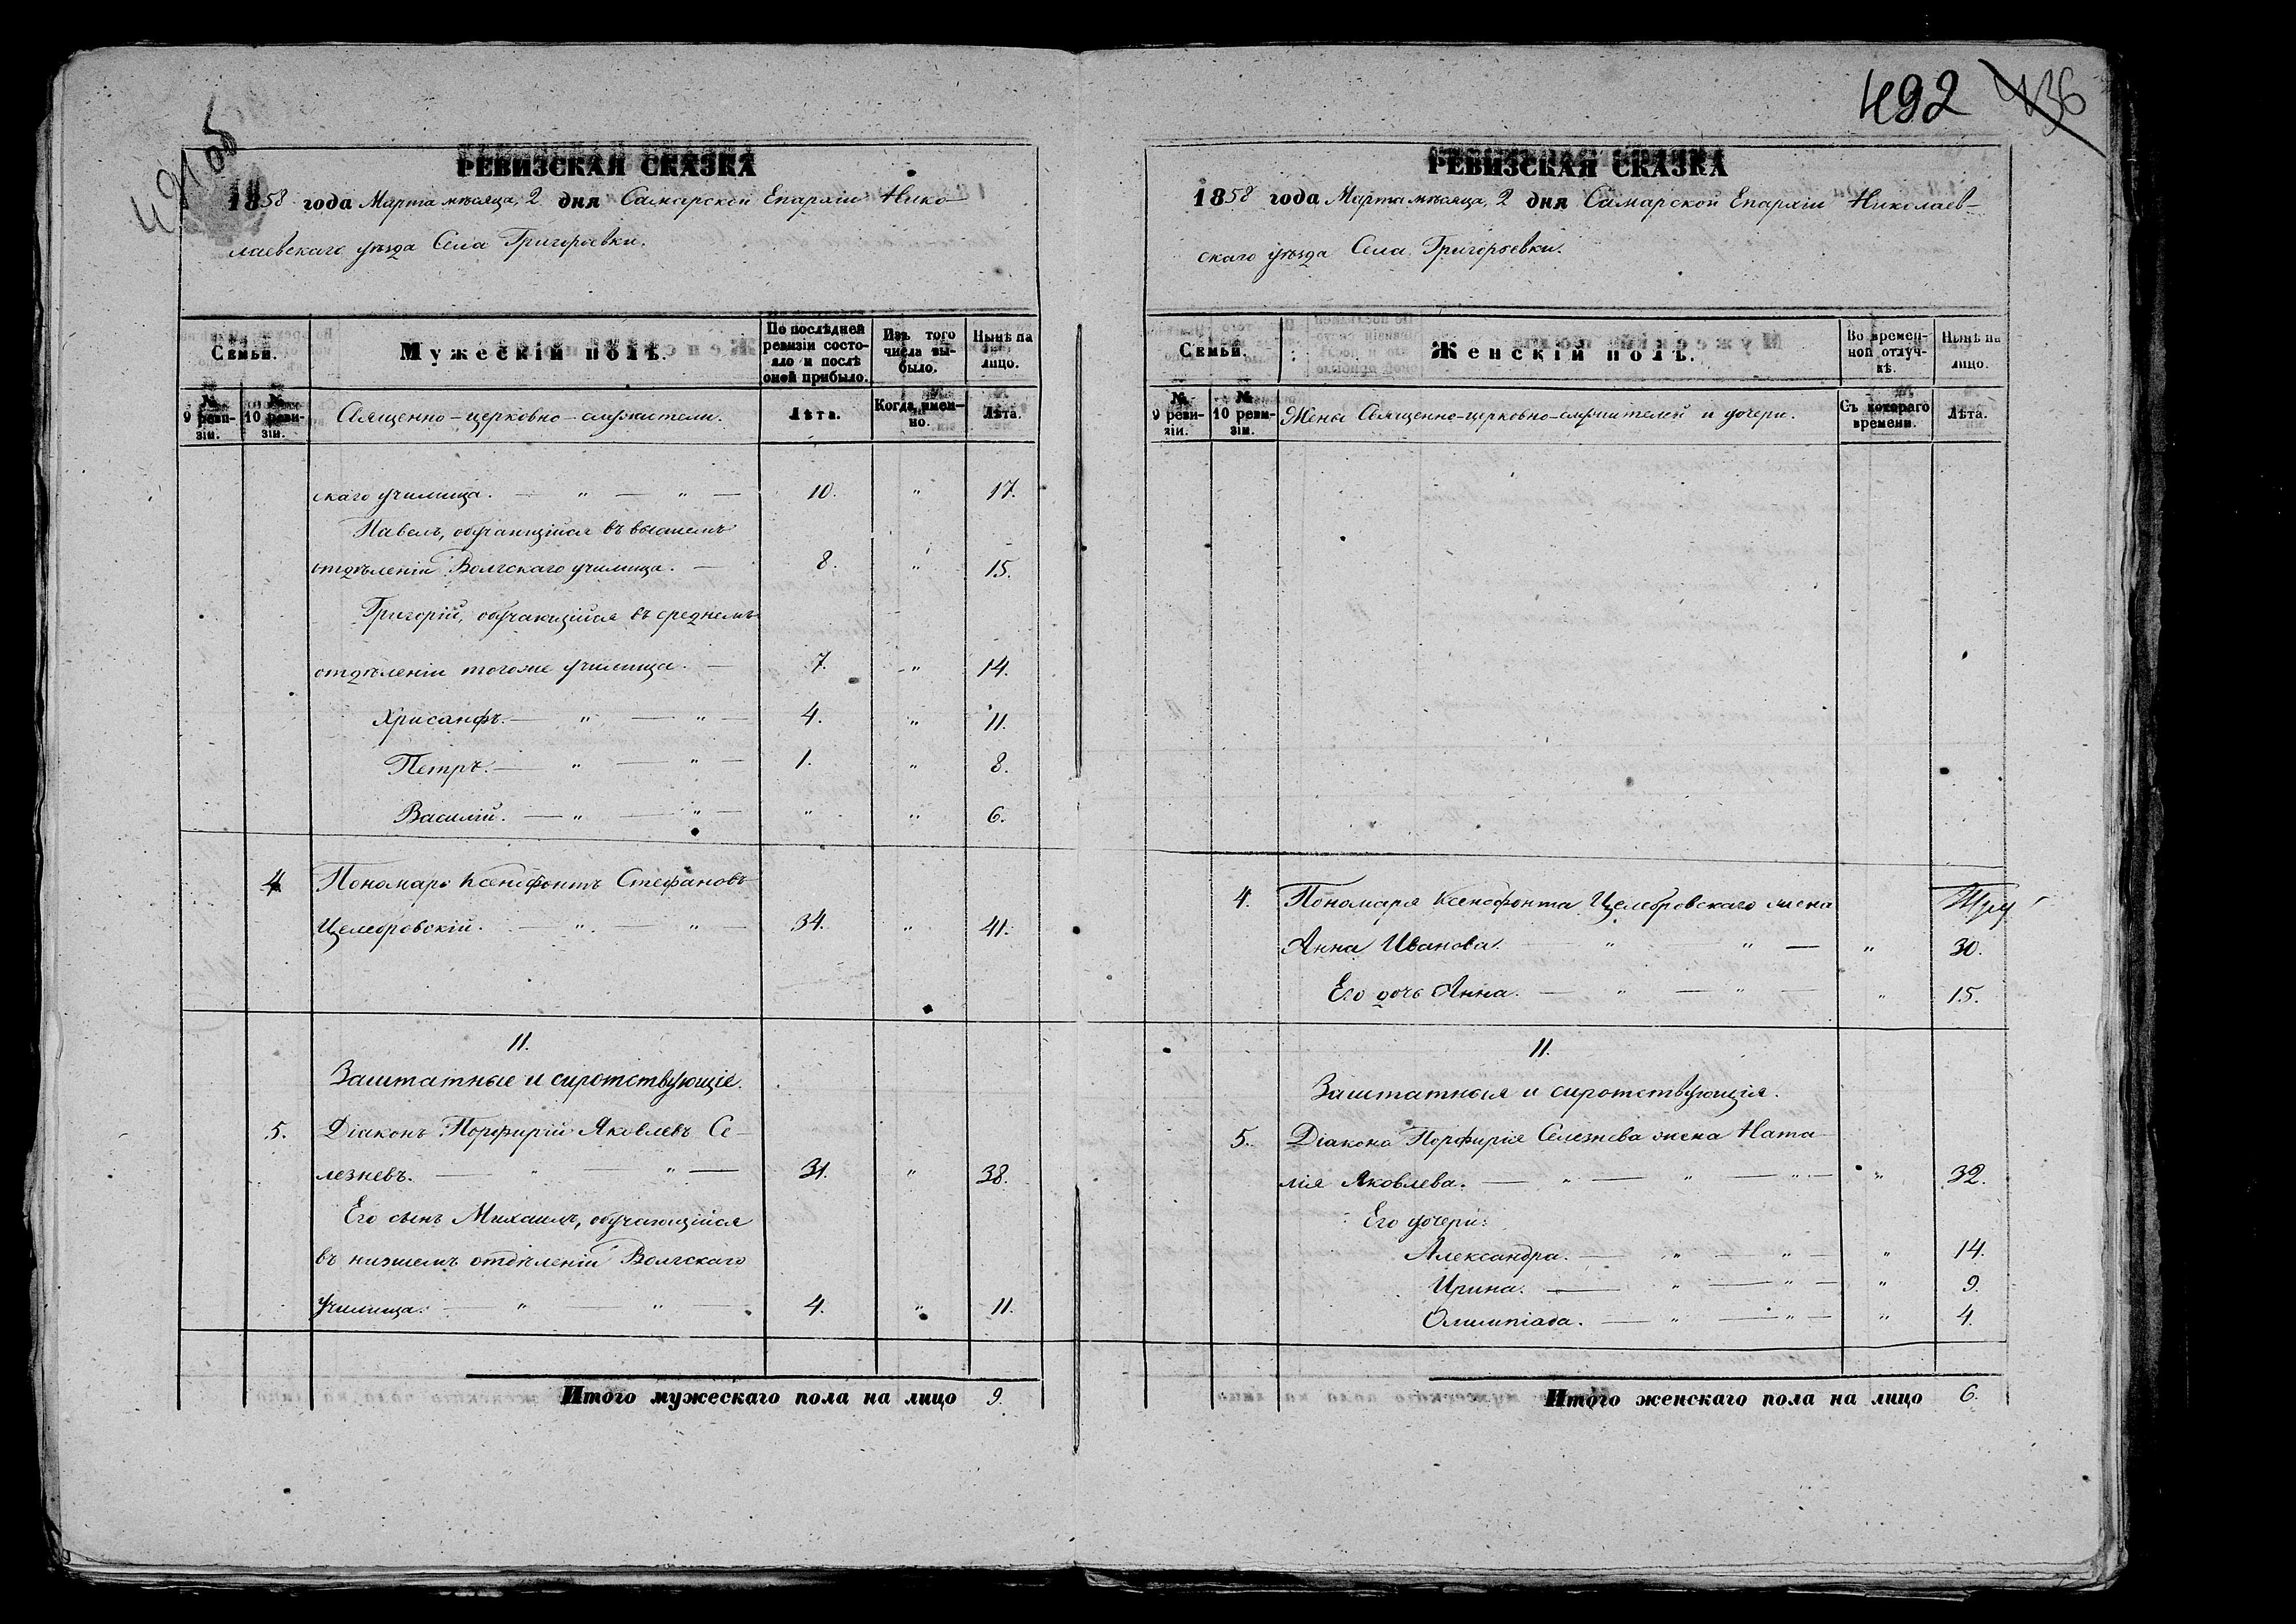 491 об
РЕВИЗСКАЯ СКАЗКА
1858 года Марта мѣсяца, 2 дня Самарской Епархіи Нико-
лаевскаго уѣзда Села Григорьевки.
Семьи.
Мужескій полъ.
По послѣдней ревизіи состояло и послѣ оной прибыло.
Изъ того числа выбыло.
Нынѣ на лицо.
№ 9 ревизіи.
№ 10 ревизіи.
Священно-церковно-служители.
Лѣта.
Когда имен-
но.
Лѣта.
скаго училища. — " — " — 10. " 17.
Павелъ, обучающійся въ высшемъ
отдѣленіи Волгскаго училища. — 8. " 15.
Григорій, обучающійся въ среднемъ
отдѣленіи тогоже училища. — 7. " 14.
Хрисанфъ. — " — " — 4. " 11.
Петръ. — " — " — 1. " 8.
Василій. — " — " — " " 6.
4. Пономарь Ксенофонтъ Стефановъ
Целебровскій. — " — " — 34. " 41.
11.
Заштатные и сиротствующіе.
5. Діаконъ Порфирій Яковлевъ Се-
лезневъ. — " — " — 31. " 38.
Его сынъ Михаилъ, обучающійся
въ низшемъ отдѣленіи Волгскаго
училища. — " " — 4. " 11.
Итого мужескаго пола на лицо 9.
492 436
РЕВИЗСКАЯ СКАЗКА
1858 года Марта мѣсяца, 2 дня Самарской Епархіи Николаев-
скаго уѣзда Села Григорьевки.
Семьи.
Женскій полъ.
Во времен-
ной отлуч-
кѣ.
Нынѣ на
лицо.
№ 9 ревизіи.
№ 10 ревизіи.
Жены Священно-церковно-служителей и дочери.
Съ котораго
времени.
Лѣта.
4. Пономаря Ксенофонта Целебровскаго жена
Анна Иванова. — " " — " 30.
Его дочь Анна. — " — " — " 15.
11.
Заштатныя и сиротствующія.
5. Діакона Порфирія Селезнева жена Ната-
лія Яковлева. — " — " — " — " 32.
Его дочери:
Александра. — " — " — " 14.
Ирина. — " — " — " 9.
Олимпіада. — " — " — " 4.
Итого женскаго пола на лицо 6.